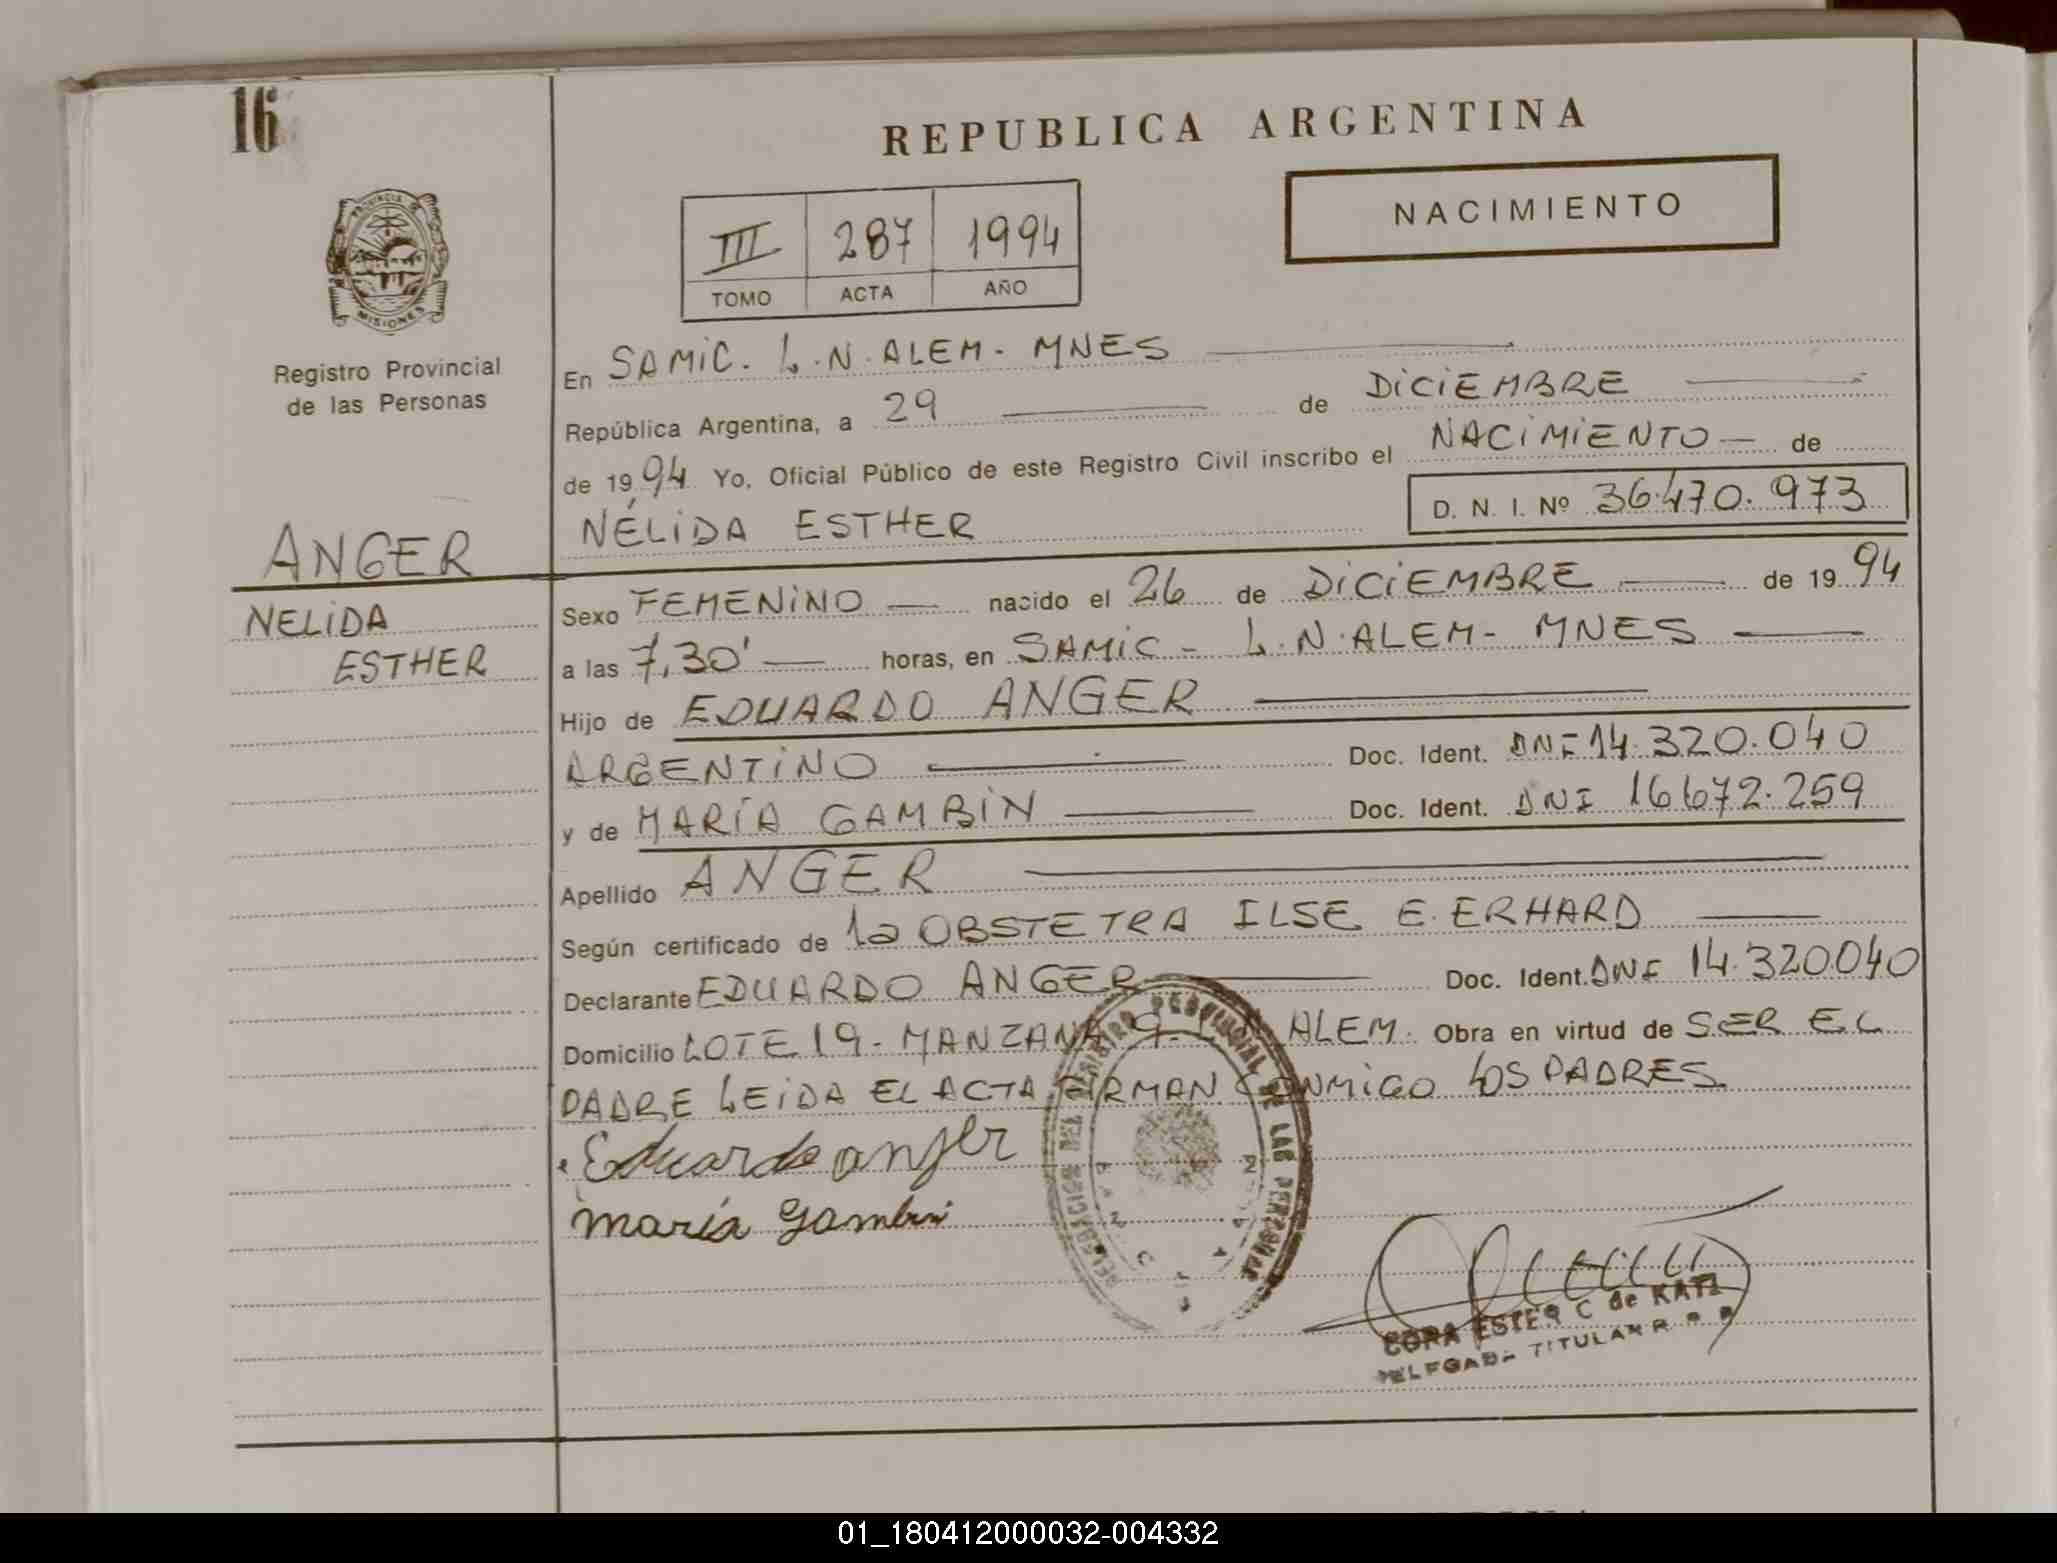 16
REPUBLICA ARGENTINA
NACIMIENTO
III 287 1994
TOMO ACTA AÑO
PROVINCIA DE
MISIONES
Registro Provincial
de las Personas
En SAMIC. L.N.ALEM- MNES
República Argentina, a 29 de DICIEMBRE
de 1994 Yo, Oficial Público de este Registro Civil inscribo el NACIMIENTO- de
NÉLIDA ESTHER D. N. I. Nº 36.470.973
ANGER
NELIDA
ESTHER
Sexo FEMENINO nacido el 26 de DICIEMBRE de 1994
a las 7,30' horas, en SAMIC - L.N.ALEM- MNES
Hijo de EDUARDO ANGER
ARGENTINO Doc. Ident. DNI 14.320.040
y de MARÍA GAMBIN Doc. Ident. DNI 16672.259
Apellido ANGER
Según certificado de la OBSTETRA ILSE E. ERHARD
Declarante EDUARDO ANGER Doc. Ident. DNI 14.320040
Domicilio LOTE 19- MANZANA 9- L.N.ALEM. Obra en virtud de SER EL
PADRE LEIDA EL ACTA FIRMAN CONMIGO LOS PADRES
Eduardo anjer
maría Gambin
REGISTRO PROVINCIAL DE LAS PERSONAS
CORA ESTER C de KATZ
DELEGADA TITULAR R. P. P.
01_180412000032-004332